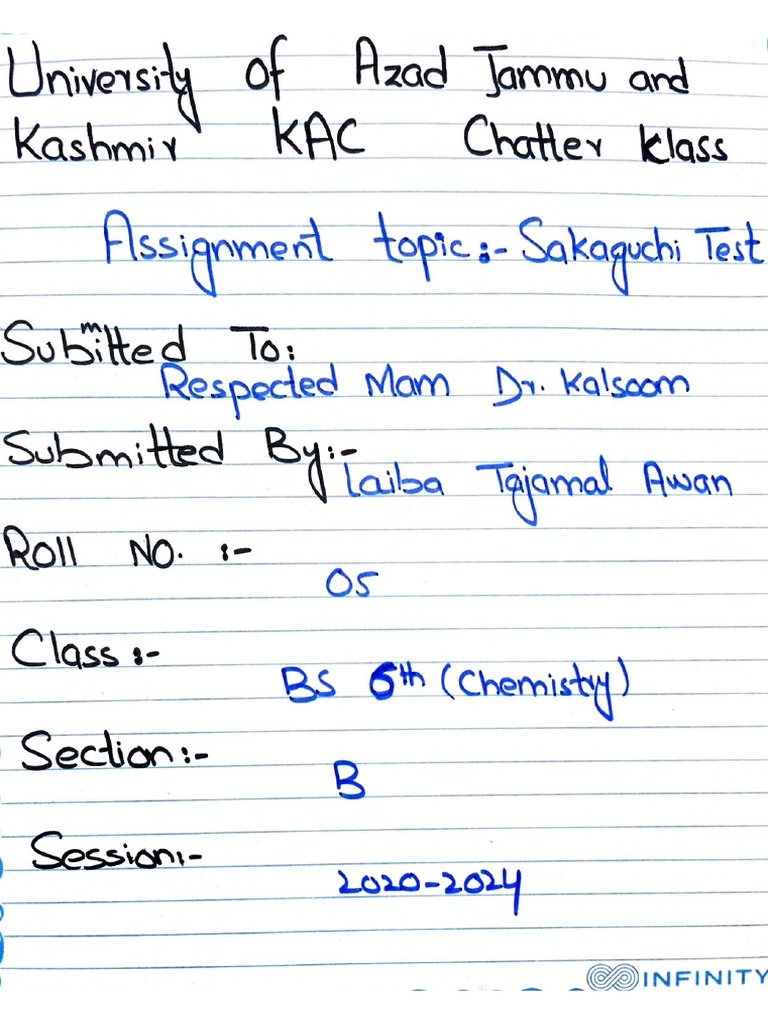 University of Azad Jammu and
Kashmir KAC Chatter Klass
Assignment topic:- Sakaguchi Test
Submitted To:
Respected Mam Dr. Kalsoom
Submitted By:-
Laiba Tajamal Awan
Roll NO. :-
05
Class:-
BS 6th (Chemistry)
Section:-
B
Session:-
2020-2024
INFINITY